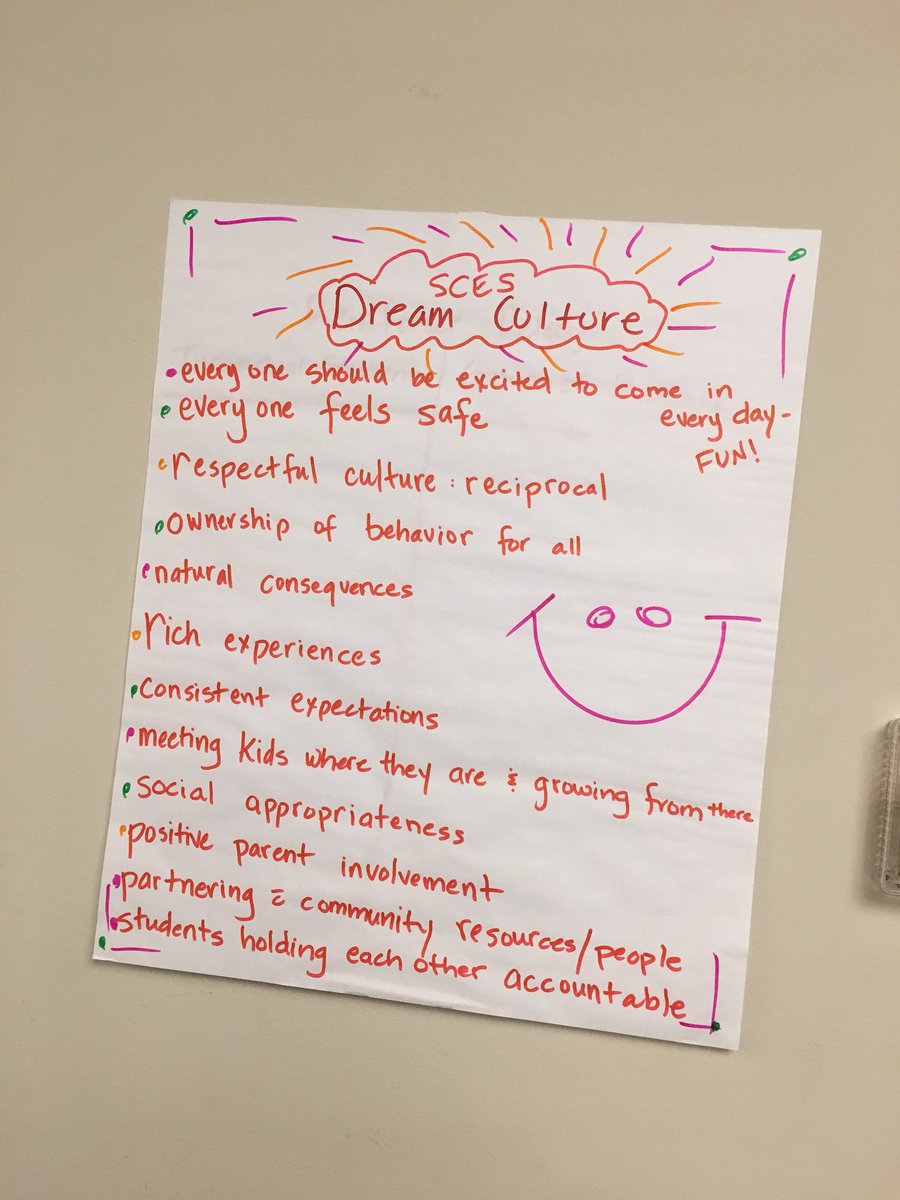 SCES
Dream Culture
• everyone should be excited to come in
every day -
FUN!
• everyone feels safe
• respectful culture : reciprocal
• ownership of behavior for all
• natural consequences
• rich experiences
• consistent expectations
• meeting kids where they are & growing from there
• social appropriateness
• positive parent involvement
• partnering & community resources/people
• students holding each other accountable